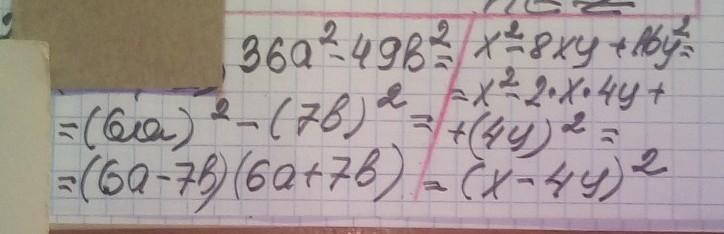 36a² - 49b² =
= (6a)² - (7b)² =
= (6a - 7b)(6a + 7b)
x² - 8xy + 16y² =
= x² - 2·x·4y +
+ (4y)² =
= (x - 4y)²